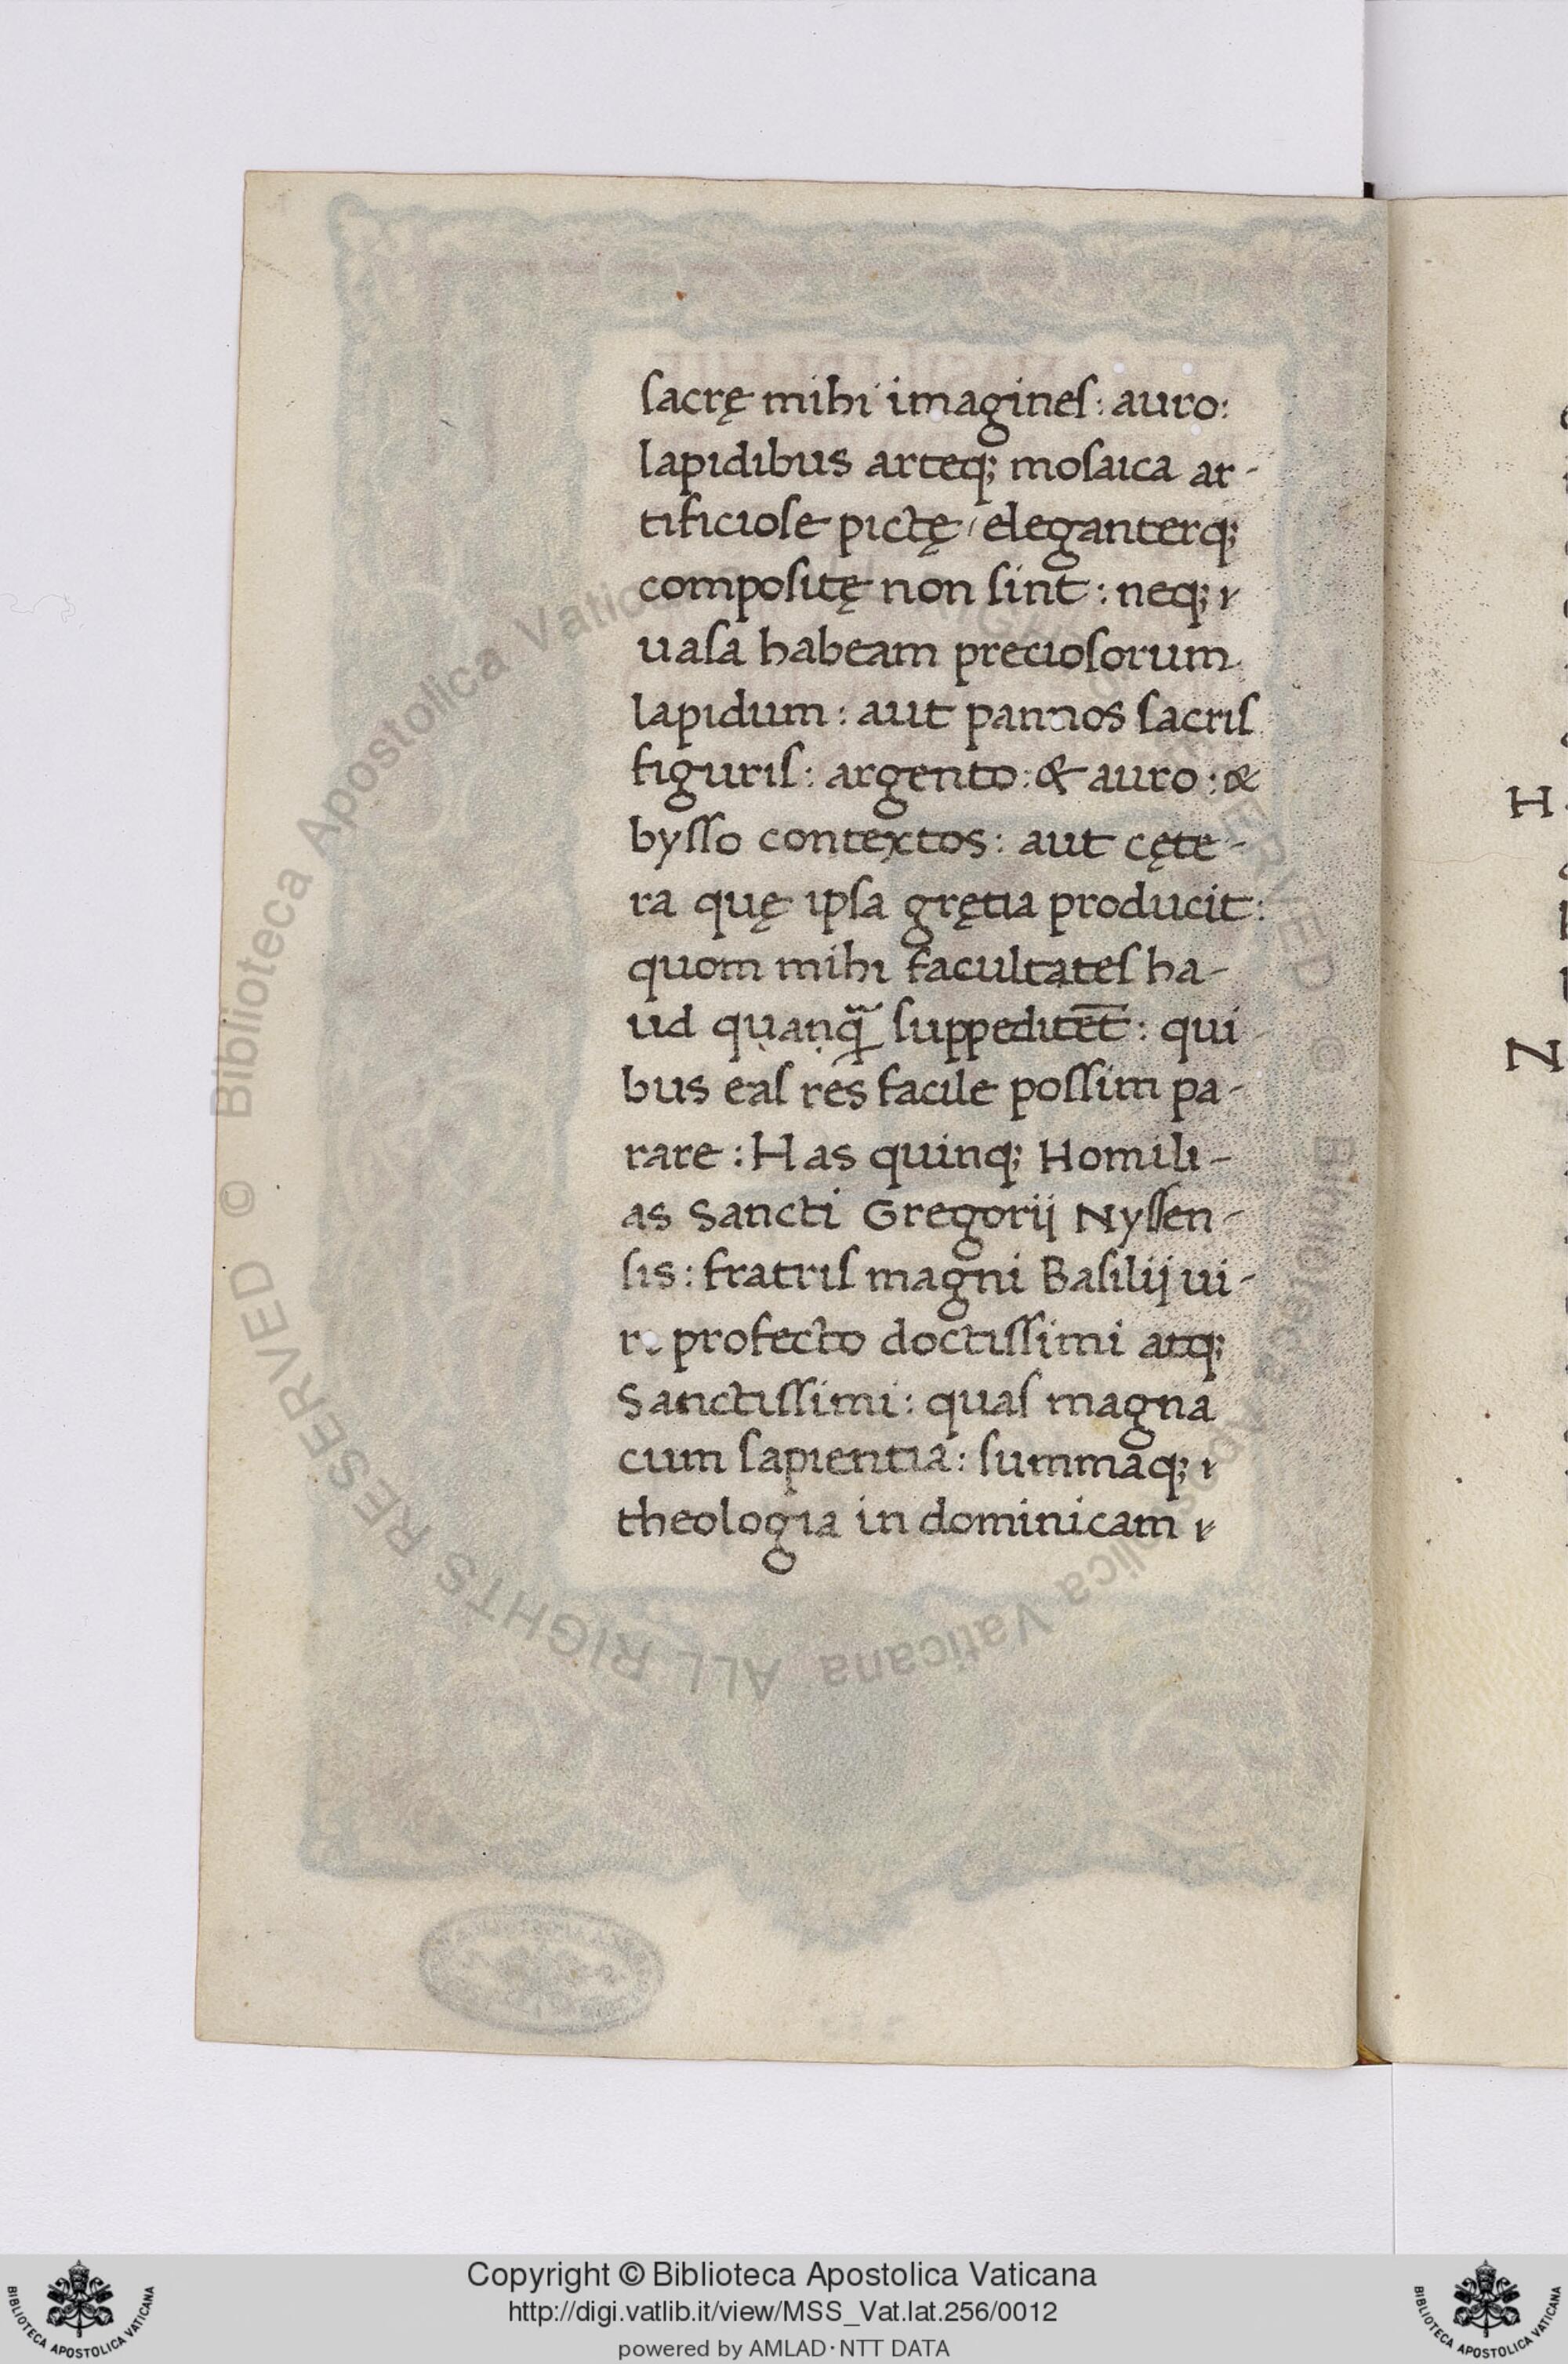 sacrę mihi imagines: auro:
lapidibus arteq; mosaica ar-
tificiose pictę / eleganterq;
compositę non sint: neq;
uasa habeam preciosorum
lapidum: aut pannos sacris
figuris: argento: & auro: &
bysso contextos: aut cęte-
ra quę ipsa gręcia producit:
quom mihi facultates ha-
ud quanq̃ suppeditēt: qui
bus eas res facile possim pa-
rare: Has quinq; Homili-
as Sancti Gregorij Nyssen-
sis: fratris magni Basilij ui-
ri profecto doctissimi atq;
Sanctissimi: quas magna
cum sapientia: summaq;
theologia in dominicam
H
N
© Biblioteca Apostolica Vaticana ALL RIGHTS RESERVED © Biblioteca Apostolica Vaticana ALL RIGHTS RESERVED
Copyright © Biblioteca Apostolica Vaticana
http://digi.vatlib.it/view/MSS_Vat.lat.256/0012
powered by AMLAD·NTT DATA
BIBLIOTECA APOSTOLICA VATICANA
BIBLIOTECA APOSTOLICA VATICANA